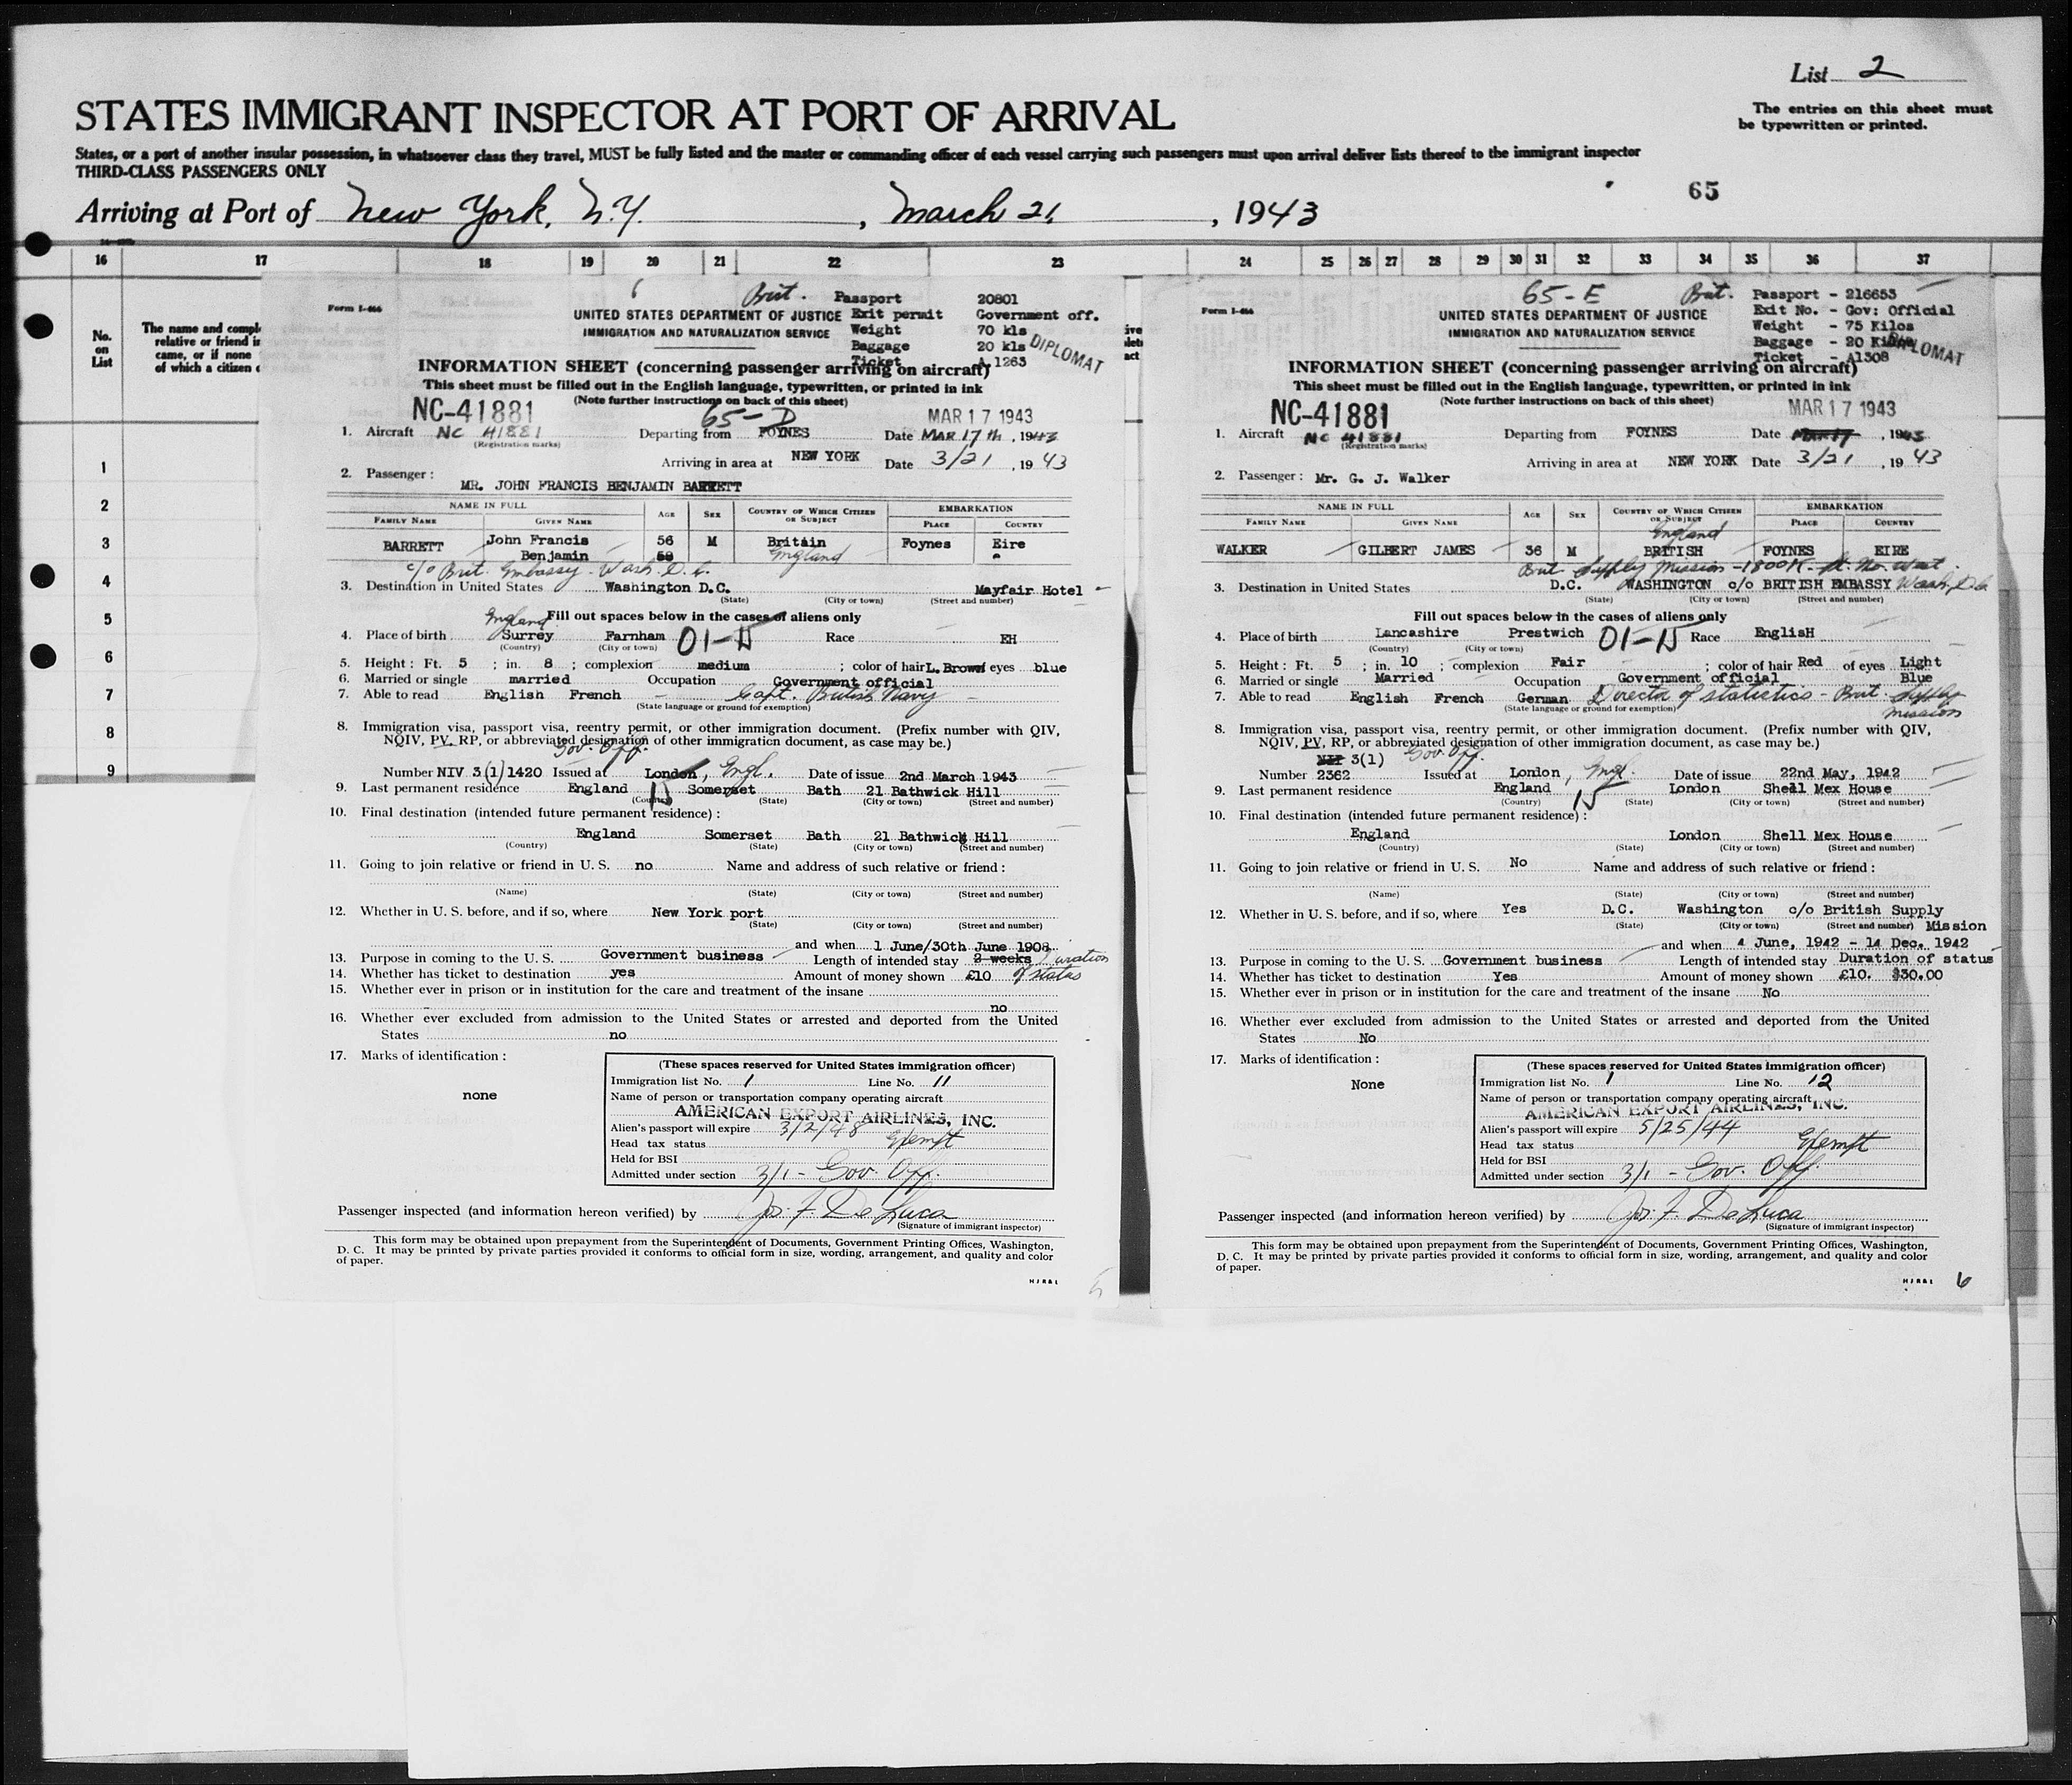 List 2
The entries on this sheet must
be typewritten or printed.
STATES IMMIGRANT INSPECTOR AT PORT OF ARRIVAL
States, or a port of another insular possession, in whatsoever class they travel, MUST be fully listed and the master or commanding officer of each vessel carrying such passengers must upon arrival deliver lists thereof to the immigrant inspector
THIRD-CLASS PASSENGERS ONLY
65
Arriving at Port of New York, N.Y. , March 21, , 1943
16 17 18 19 20 21 22 23 24 25 26 27 28 29 30 31 32 33 34 35 36 37
No.
on
List
The name and compl
relative or friend i
came, or if none
of which a citizen
1
2
3
4
5
6
7
8
9
Form I-466
Brit. Passport 20801
UNITED STATES DEPARTMENT OF JUSTICE Exit permit Government off.
IMMIGRATION AND NATURALIZATION SERVICE Weight 70 kls
Baggage 20 kls DIPLOMAT
Ticket A 1263
INFORMATION SHEET (concerning passenger arriving on aircraft)
This sheet must be filled out in the English language, typewritten, or printed in ink
(Note further instructions on back of this sheet)
NC-41881 65-D MAR 17 1943
1. Aircraft NC 41881 Departing from FOYNES Date MAR 17th, 1943
(Registration marks)
Arriving in area at NEW YORK Date 3/21, 19 43
2. Passenger :
MR. JOHN FRANCIS BENJAMIN BARRETT
NAME IN FULL AGE SEX COUNTRY OF WHICH CITIZEN OR SUBJECT EMBARKATION
FAMILY NAME GIVEN NAME PLACE COUNTRY
BARRETT John Francis 56 M Britain Foynes Eire
Benjamin 58 England
c/o Brit. Embassy Wash. D.C.
3. Destination in United States Washington D.C. Mayfair Hotel
(State) (City or town) (Street and number)
England Fill out spaces below in the cases of aliens only
4. Place of birth Surrey Farnham 01-15 Race EH
(Country) (City or town)
5. Height: Ft. 5 ; in. 8 ; complexion medium ; color of hair L. Brown eyes blue
6. Married or single married Occupation Government official
7. Able to read English French Capt. British Navy
(State language or ground for exemption)
8. Immigration visa, passport visa, reentry permit, or other immigration document. (Prefix number with QIV,
NQIV, PV, RP, or abbreviated designation of other immigration document, as case may be.)
Gov. Off.
Number NIV 3(1)1420 Issued at London, Engl. Date of issue 2nd March 1943
9. Last permanent residence England Somerset Bath 21 Bathwick Hill
(Country) 15 (State) (City or town) (Street and number)
10. Final destination (intended future permanent residence) :
England Somerset Bath 21 Bathwick Hill
(Country) (State) (City or town) (Street and number)
11. Going to join relative or friend in U. S. no Name and address of such relative or friend :
(Name) (State) (City or town) (Street and number)
12. Whether in U. S. before, and if so, where New York port
(State) (City or town) (Street and number)
and when 1 June/30th June 1908
13. Purpose in coming to the U. S. Government business Length of intended stay 2 weeks Duration
of status
14. Whether has ticket to destination yes Amount of money shown £10
15. Whether ever in prison or in institution for the care and treatment of the insane
no
16. Whether ever excluded from admission to the United States or arrested and deported from the United
States no
17. Marks of identification :
none
(These spaces reserved for United States immigration officer)
Immigration list No. 1 Line No. 11
Name of person or transportation company operating aircraft
AMERICAN EXPORT AIRLINES, INC.
Alien's passport will expire 3/2/48
Head tax status Exempt
Held for BSI
Admitted under section 3/1 - Gov. Off.
Passenger inspected (and information hereon verified) by Jos. F. DeLuca
(Signature of immigrant inspector)
This form may be obtained upon prepayment from the Superintendent of Documents, Government Printing Offices, Washington,
D. C. It may be printed by private parties provided it conforms to official form in size, wording, arrangement, and quality and color
of paper.
5
Form I-466
65-E Brit. Passport - 216653
UNITED STATES DEPARTMENT OF JUSTICE Exit No. - Gov: Official
IMMIGRATION AND NATURALIZATION SERVICE Weight - 75 Kilos
Baggage - 20 Kilos DIPLOMAT
Ticket - A1308
INFORMATION SHEET (concerning passenger arriving on aircraft)
This sheet must be filled out in the English language, typewritten, or printed in ink
(Note further instructions on back of this sheet)
NC-41881 MAR 17 1943
1. Aircraft NC 41881 Departing from FOYNES Date Mar 17, 1943
(Registration marks)
Arriving in area at NEW YORK Date 3/21, 19 43
2. Passenger : Mr. G. J. Walker
NAME IN FULL AGE SEX COUNTRY OF WHICH CITIZEN OR SUBJECT EMBARKATION
FAMILY NAME GIVEN NAME PLACE COUNTRY
England
WALKER GILBERT JAMES 36 M BRITISH FOYNES EIRE
Brit Supply Mission - 1800 K St. No. West.
3. Destination in United States D.C. WASHINGTON c/o BRITISH EMBASSY Wash, D.C.
(State) (City or town) (Street and number)
Fill out spaces below in the cases of aliens only
4. Place of birth Lancashire Prestwich 01-15 Race EnglisH
(Country) (City or town)
5. Height: Ft. 5 ; in. 10 ; complexion Fair ; color of hair Red of eyes Light
Blue
6. Married or single Married Occupation Government official
7. Able to read English French German Director of statistics - Brit. Supply
Mission
(State language or ground for exemption)
8. Immigration visa, passport visa, reentry permit, or other immigration document. (Prefix number with QIV,
NQIV, PV, RP, or abbreviated designation of other immigration document, as case may be.)
3(1) Gov. Off.
Number 2362 Issued at London, Engl. Date of issue 22nd May, 1942
9. Last permanent residence England London Shell Mex House
(Country) 15 (State) (City or town) (Street and number)
10. Final destination (intended future permanent residence) :
England London Shell Mex House
(Country) (State) (City or town) (Street and number)
11. Going to join relative or friend in U. S. No Name and address of such relative or friend :
(Name) (State) (City or town) (Street and number)
12. Whether in U. S. before, and if so, where Yes D.C. Washington c/o British Supply
(State) (City or town) (Street and number) Mission
and when 4 June, 1942 - 14 Dec. 1942
13. Purpose in coming to the U. S. Government business Length of intended stay Duration of status
14. Whether has ticket to destination Yes Amount of money shown £10. $30.00
15. Whether ever in prison or in institution for the care and treatment of the insane No
16. Whether ever excluded from admission to the United States or arrested and deported from the United
States No
17. Marks of identification :
None
(These spaces reserved for United States immigration officer)
Immigration list No. 1 Line No. 12
Name of person or transportation company operating aircraft
AMERICAN EXPORT AIRLINES, INC.
Alien's passport will expire 5/25/44
Head tax status Exempt
Held for BSI
Admitted under section 3/1 - Gov. Off.
Passenger inspected (and information hereon verified) by Jos. F. DeLuca
(Signature of immigrant inspector)
This form may be obtained upon prepayment from the Superintendent of Documents, Government Printing Offices, Washington,
D. C. It may be printed by private parties provided it conforms to official form in size, wording, arrangement, and quality and color
of paper.
6